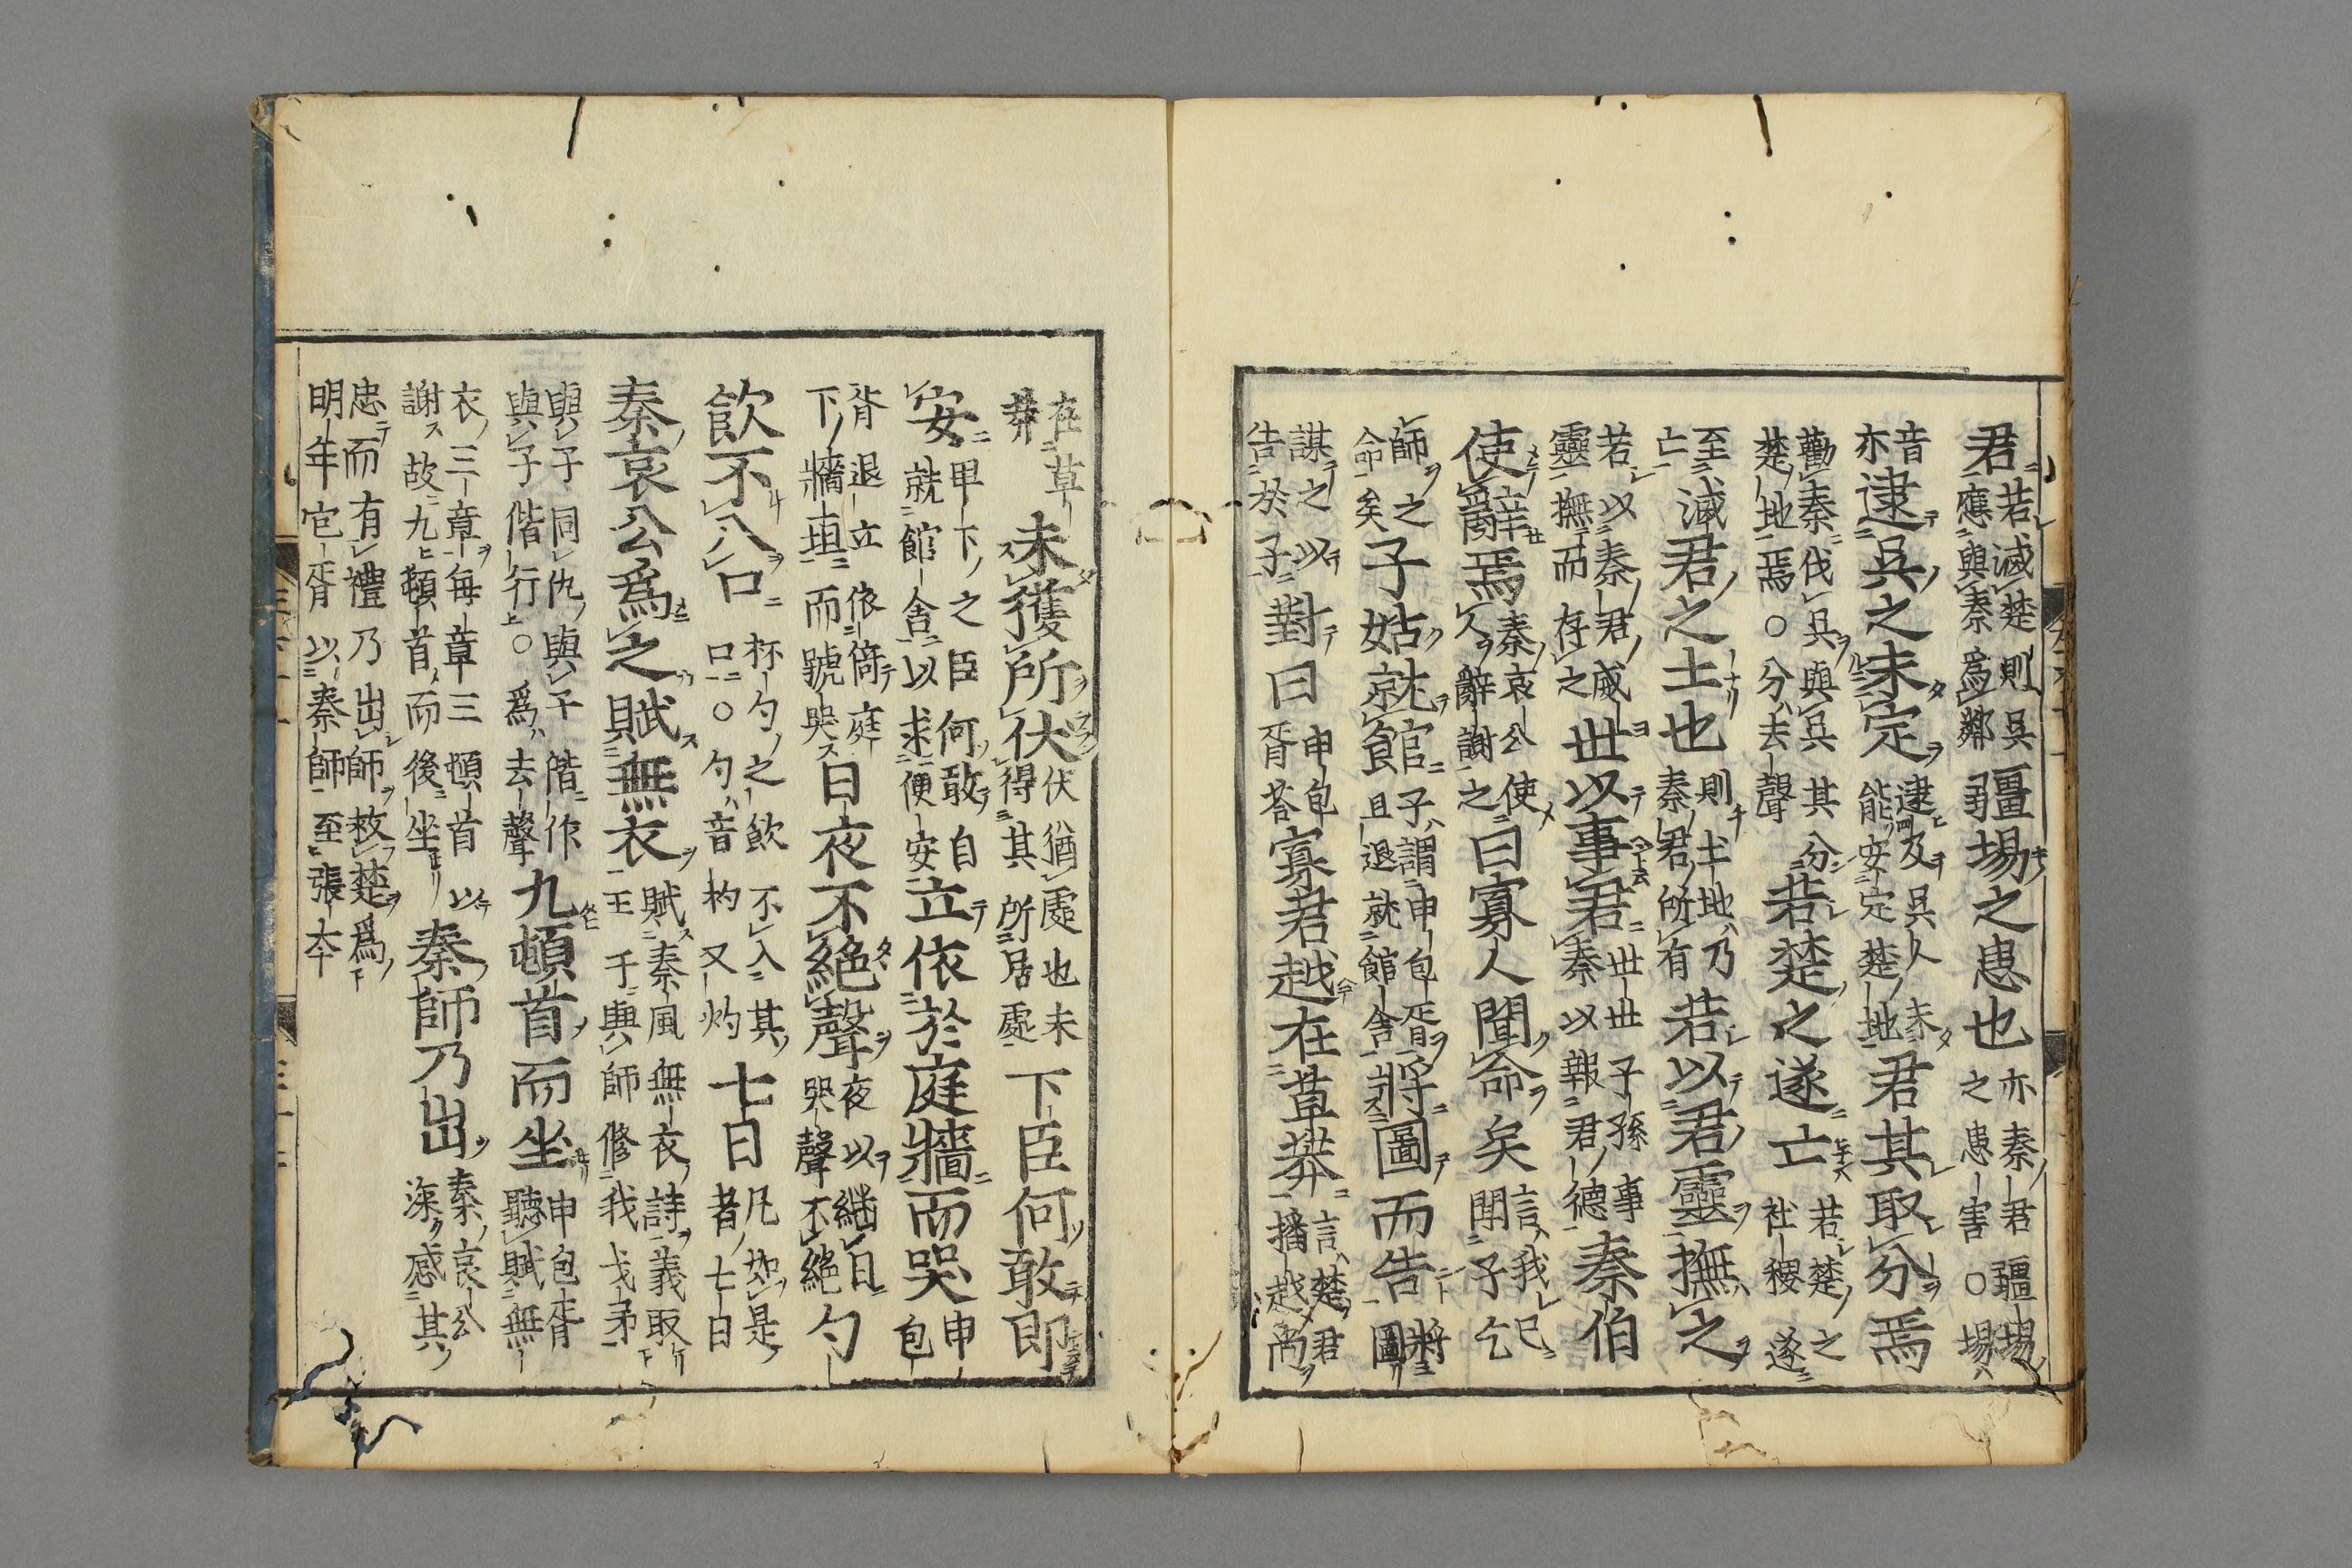 君若滅楚則吳應與秦爲鄰疆埸之患也亦秦君疆埸之患害○埸
音亦逮吳之未定逮及吳人未能安定楚地君其取分焉
勸秦伐吳與吳其分楚地焉○分去聲若楚之遂亡若楚之社稷遂
至亡滅君之土也則土地乃秦君所有若以君靈撫之
若以秦君威靈撫而存之世以事君世世子孫事秦以報君德秦伯
使辭焉秦哀公使人辭謝之曰寡人聞命矣言我已聞子乞
師之命矣子姑就館子謂申包胥且退就館舍將圖而告將圖
謀之以告於子對曰申包胥荅寡君越在草莽言楚君播越而
在草莽未獲所伏伏猶處也未得其所居處下臣何敢即
安甲下之臣何敢自就館舍以求便安立依於庭牆而哭申包
胥退立依倚庭下牆垣而號哭日夜不絕聲夜以繼日哭聲不絕勺
飲不入口杯勺之飲不入其口○勺音杓又灼七日凡如是者七日
秦哀公爲之賦無衣賦秦風無衣詩義取王于興師修我戈矛
與子同仇與子偕作與子偕行○爲去聲九頓首而坐申包胥聽賦無
衣三章每章三頓首以謝故九頓首而後坐秦師乃出秦哀公深感其
忠而有禮乃出師救楚爲明年包胥以秦師至張本